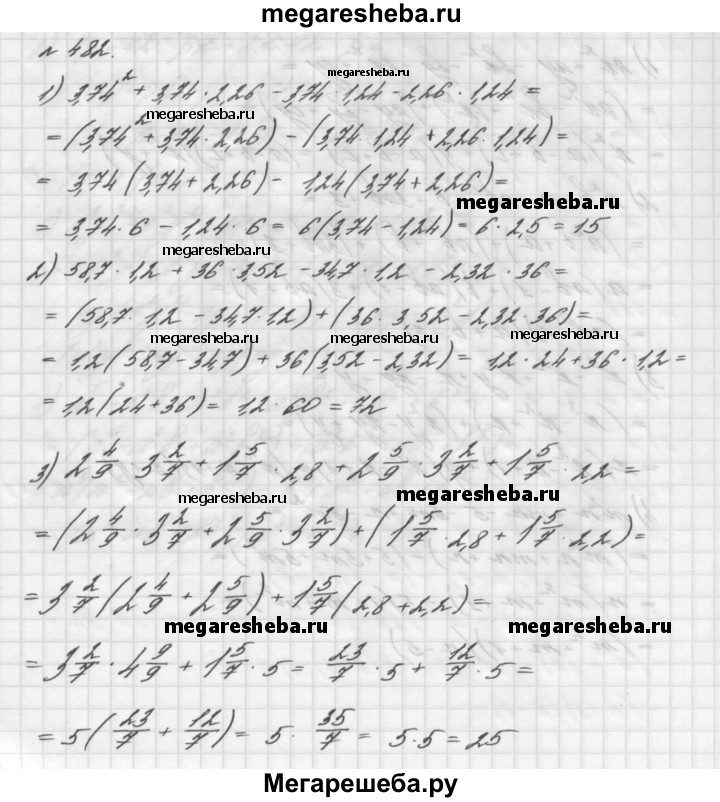 megaresheba.ru
№ 482.
megaresheba.ru
1) 3,74² + 3,74 · 2,26 - 3,74 · 1,24 - 2,26 · 1,24 =
megaresheba.ru
= (3,74² + 3,74 · 2,26) - (3,74 · 1,24 + 2,26 · 1,24) =
= 3,74 (3,74 + 2,26) - 1,24 (3,74 + 2,26) =
megaresheba.ru
= 3,74 · 6 - 1,24 · 6 = 6 (3,74 - 1,24) = 6 · 2,5 = 15
megaresheba.ru
2) 58,7 · 1,2 + 36 · 3,52 - 34,7 · 1,2 - 2,32 · 36 =
= (58,7 · 1,2 - 34,7 · 1,2) + (36 · 3,52 - 2,32 · 36) =
megaresheba.ru megaresheba.ru
= 1,2 (58,7 - 34,7) + 36 (3,52 - 2,32) = 1,2 · 24 + 36 · 1,2 =
= 1,2 (24 + 36) = 1,2 · 60 = 72
3) 2 4/9 · 3 2/7 + 1 5/7 · 2,8 + 2 5/9 · 3 2/7 + 1 5/7 · 2,2 =
megaresheba.ru megaresheba.ru
= (2 4/9 · 3 2/7 + 2 5/9 · 3 2/7) + (1 5/7 · 2,8 + 1 5/7 · 2,2) =
= 3 2/7 (2 4/9 + 2 5/9) + 1 5/7 (2,8 + 2,2) =
megaresheba.ru megaresheba.ru
= 3 2/7 · 4 9/9 + 1 5/7 · 5 = 23/7 · 5 + 12/7 · 5 =
= 5 (23/7 + 12/7) = 5 · 35/7 = 5 · 5 = 25
Мегарешеба.ру